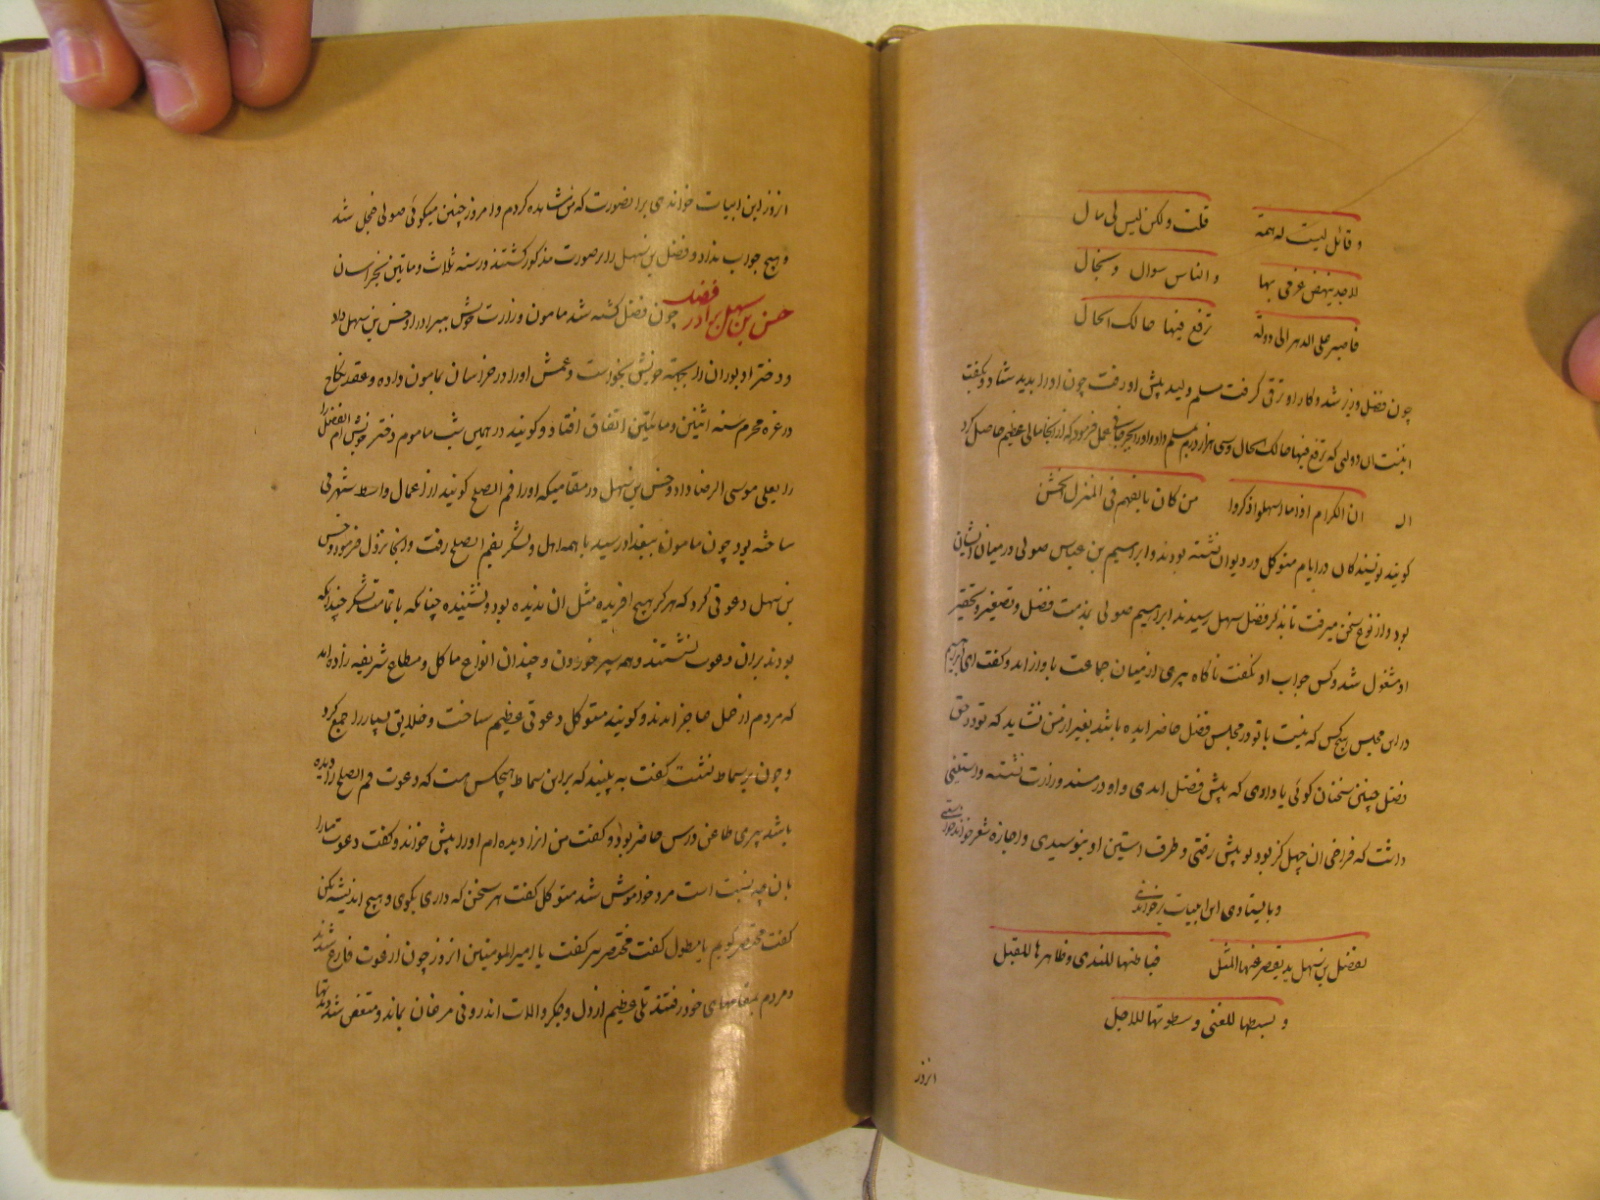 و قائل لیست له همة قلت ولکن لیس لی مال
لا جد ینهض عزمی بها و الناس سوال و بخال
فاصبر علی الدهر الی دولة ترفع فیها حالک الحال
چون فضل وزیر شد و کار او ترقی گرفت مسلم ولید پیش او رفت چون او را بدید شاد و بگفت
اینست ان دولتی که ترفع فیها حالک الحال و سی هزار درم بمسلم داد و او را عمل فرمود که از انجا مالی عظیم حاصل کرد
ان الکرام اذا ما اسهلوا ذکروا من کان یالفهم فی المنزل الخشن
کویند نویسندکان در ایام متوکل در دیوان نشسته بودند و ابراهیم بن عباس صولی در میان ایشان
بود و از هر نوع سخن میرفت تا بذکر فضل سهل رسیدند ابراهیم صولی بمذمت فضل و تصغیر و تحقیر
او مشغول شد و کس جواب او نکفت ناکاه پیری از میان جماعت باواز امد و کفت ای ابراهیم
در این مجلس هیچ کس که نیست با تو در مجلس فضل حاضر ایده باشد بغیر از من نشاید که تو در حق
فضل چنین سخنان کوئی یاد داری که پیش فضل امدی و او در مسند وزارت نشسته و
داشت که فراخی ان چهل کز بود تو پیش رفتی و طرف استین او ببوسیدی و اجازه شعر خواندن خواستی
و بایستادی این ابیات بر خواندی
لفضل بن سهل ید تقصر عنها المثل فباطنها للندی و ظاهرها للقبل
و بسطها للغنی و سطوتها للاجل
انروز
انروز این ابیات خواندی برابضورت که من مشاهده کردم و امروز چنین میکوئی صولی خجل شد
و هیچ جواب نداد و فضل بن سهل را بر صورت مذکور کشتند در سنه ثلاث و مائتین بخراسان
حسن بن سهل برادر فضل چون فضل کشته شد مامون وزارت خویش ببرادر او حسن بن سهل داد
و دختر او بوران را بجهة خویش بخواست و عمش او را در خراسان بمامون داده و عقد نکاح
در غره محرم سنه اثنین و مائتین اتفاق افتاد و کویند در همین شب مامون دختر خویش ام الفضل را
را بعلی موسی الرضا داد و حسن بن سهل در مقامیکه او را فم الصلح کویند از اعمال واسط شهری
ساخته بود چون مامون ببغداد رسید با همه اهل و لشکر بفم الصلح رفت و انجا نزول فرمود و حسن
بن سهل دعوتی کرد که هرکز هیچ افریده مثل ان ندیده بود و نشنیده چنانکه با تمامت لشکر چندانکه
بودند بران دعوت نشستند و همه سیر خوردن و چندان انواع ماکل و مطاعم شریفه زاده امد
که مردم از حمل عاجز امدند و کویند متوکل دعوتی عظیم ساخت و خلایق بسیار را جمع کرد
و چون بر سماط نشست کفت به بینید که براین سماط هیچکس هست که دعوت فم الصلح را دیده
باشد پیری طاعن در سن حاضر بود و کفت من انرا دیده ام او را پیش خواند و کفت دعوت ما را
بان چه نسبت است مرد خواموش شد متوکل کفت هر سخن که داری بکوی و هیچ اندیشه مکن
کفت مختصر کویم یا مطول کفت مختصر تر کفت یا امیر المومنین انروز چون از دعوت فارغ شدند
و مردم بمقامهای خود رفتند تلی عظیم از دل و جکر و الات اندرونی مرغان بماند و متعفن شد